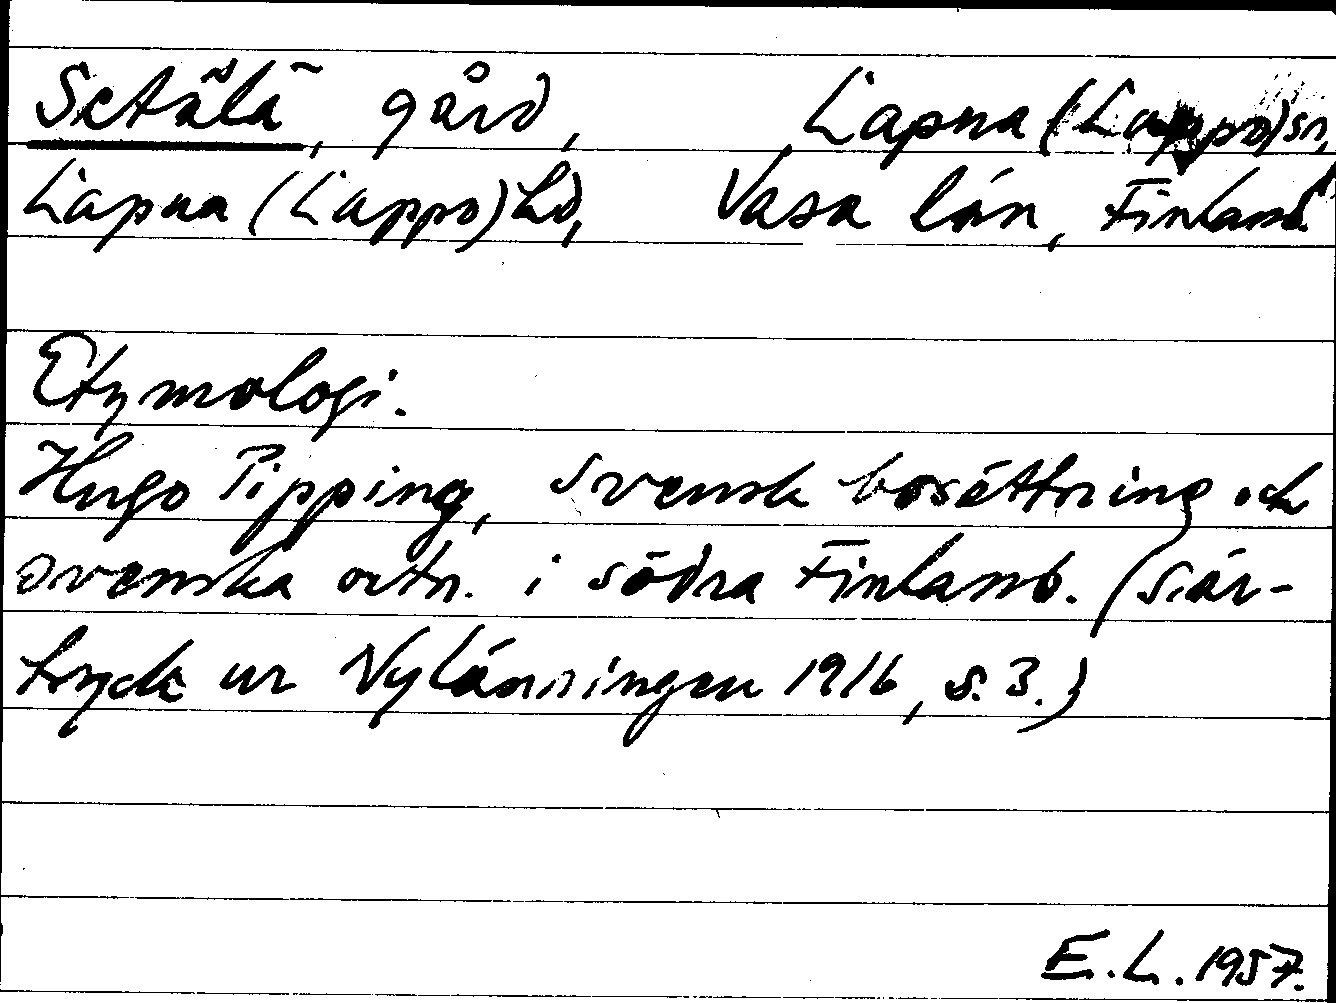 Setälä, gård, Lapua (Lappo) sn,
Lapua (Lappo) hd, Vasa län, Finland.
Etymologi.
Hugo Pipping, Svensk bosättning och
svenska ortn. i södra Finland. (Sär-
tryck ur Nylänningen 1916, s. 3.)
E.L. 1957.